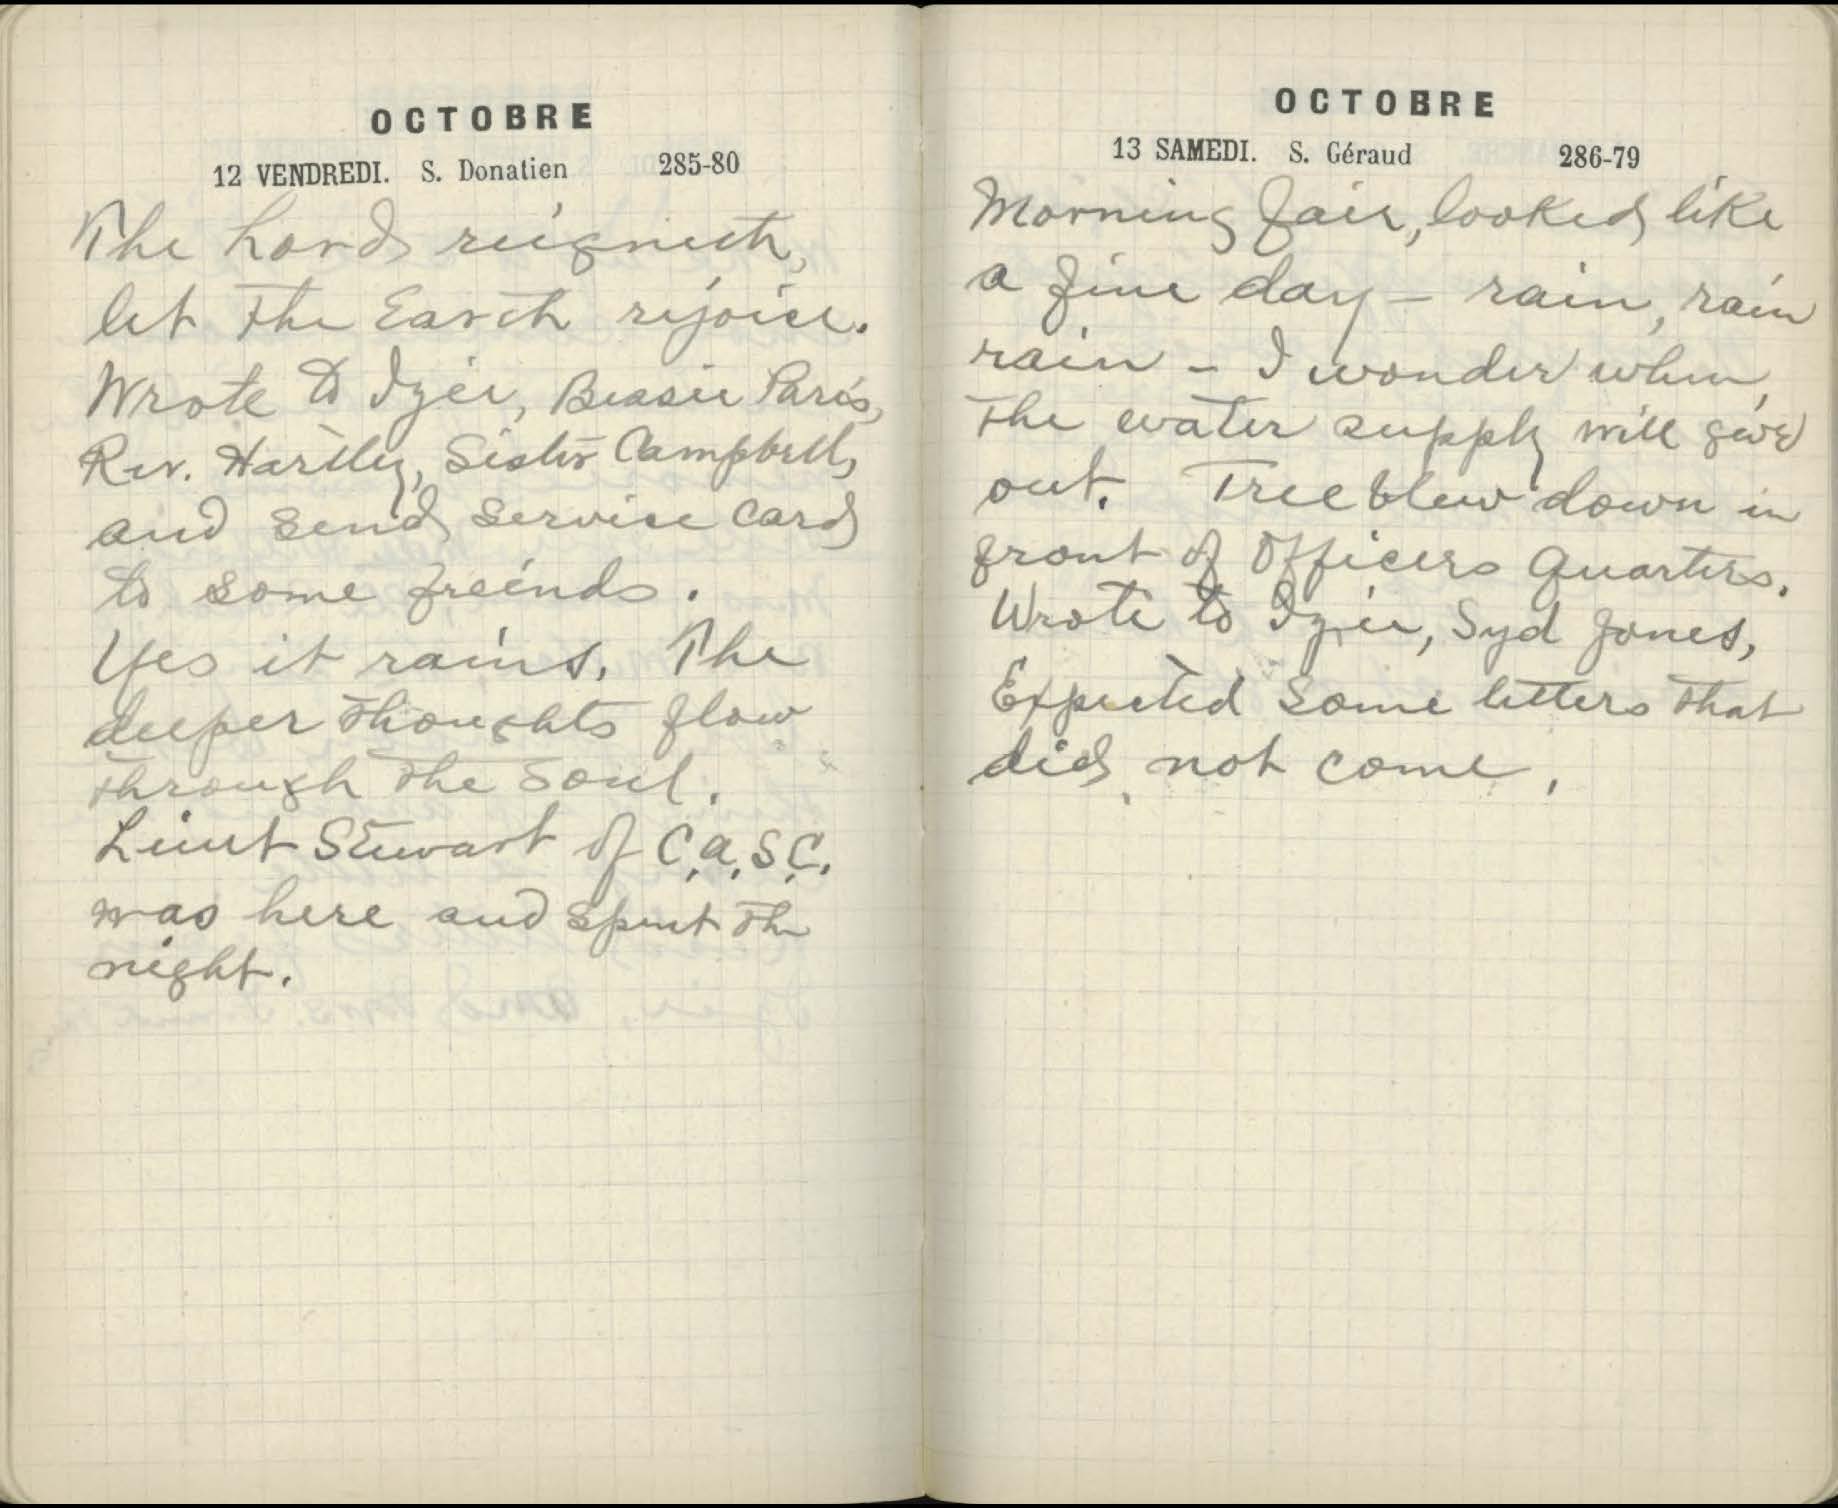 OCTOBRE
12 VENDREDI. S. Donatien 285-80
The Lord reigneth,
let the Earth rejoice.
Wrote to Izie, Bessie Paris,
Rev. Hartley, Sister Campbell,
and send service card
to some freinds.
Yes it rains. The
deeper thoughts flow
through the soul.
Lieut Stewart of C.A.S.C.
was here and spent the
night.
OCTOBRE
13 SAMEDI. S. Géraud 286-79
Morning fair, looked like
a fine day – rain, rain
rain – I wonder when
the water supply will give
out. Tree blew down in
front of Officers Quarters.
Wrote to Izie, Syd Jones,
Expected some letters that
did not come.